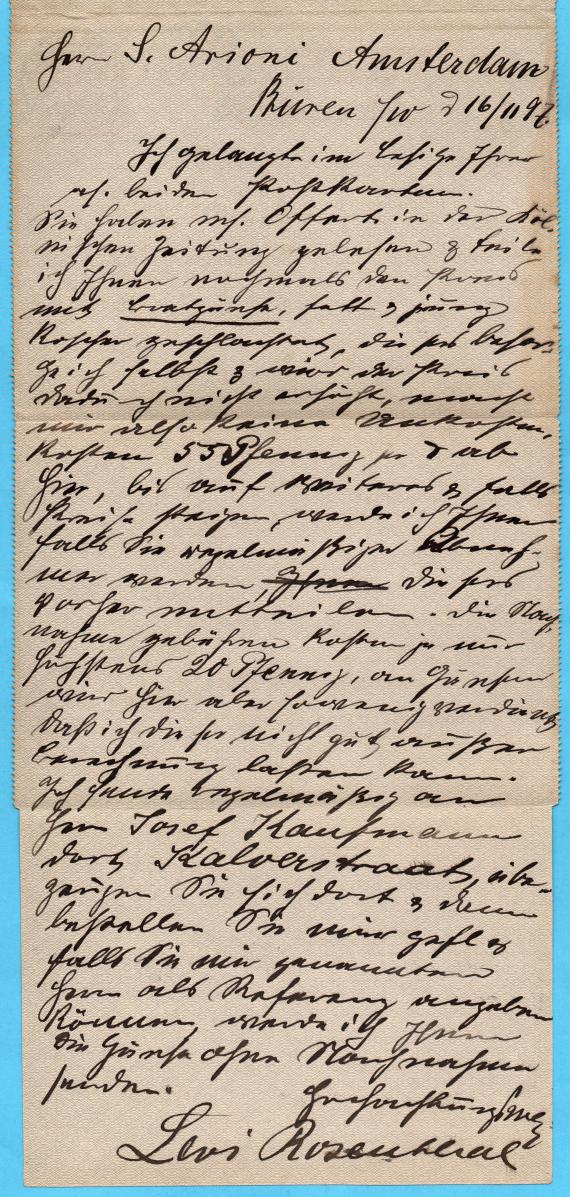 Herrn S. Arioni Amsterdam
Büren 16/11 97
Ich gelangte im Besitze Ihrer
beiden Postkarten.
Sie haben m. Offerte in der Köl-
nischen Zeitung gelesen & teile
ich Ihnen nochmals den Preis
mit Bratgänse, fett & jung
koscher geschlachtet, dieses besor-
ge ich selbst & wird der Preis
dadurch nicht erhöht, macht
mir also keine Unkosten,
kosten 55 Pfennig per ab
hier, bis auf weiteres & falls
Preise steigen, werde ich Ihnen
falls Sie regelmäßiger Abneh-
mer werden, dieses
vorher mitteilen. die Nach-
nahme gebühren kosten ja nur
höchstens 20 Pfennig, an Gänsen
wird hier aber so wenig verdient
daß ich dieses nicht gut außer
Berechnung lassen kann.
Ich sende regelmäßig an
Herrn Josef Kaufmann
dort Kalverstraat, über-
zeugen Sie sich dort & dann
bestellen Sie mir gefl &
falls Sie mir genannten
Herrn als Referenz angeben
können, werde ich Ihnen
die Gänse ohne Nachnahme
senden.
Hochachtungsvoll
Levi Rosenthal